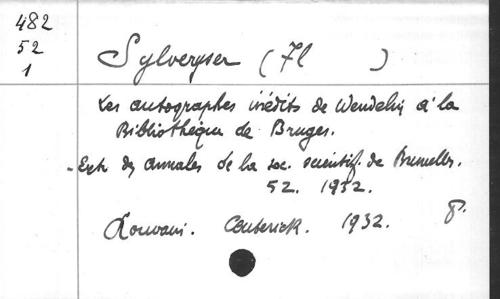 482
52
1
Sylveryser (Fl )
Les autographes inédits de Wendelin à la
Bibliothèque de Bruges.
- Extr. des Annales de la soc. scientif. de Bruxelles.
52. 1932.
Louvain. Ceuterick. 1932. 8°.